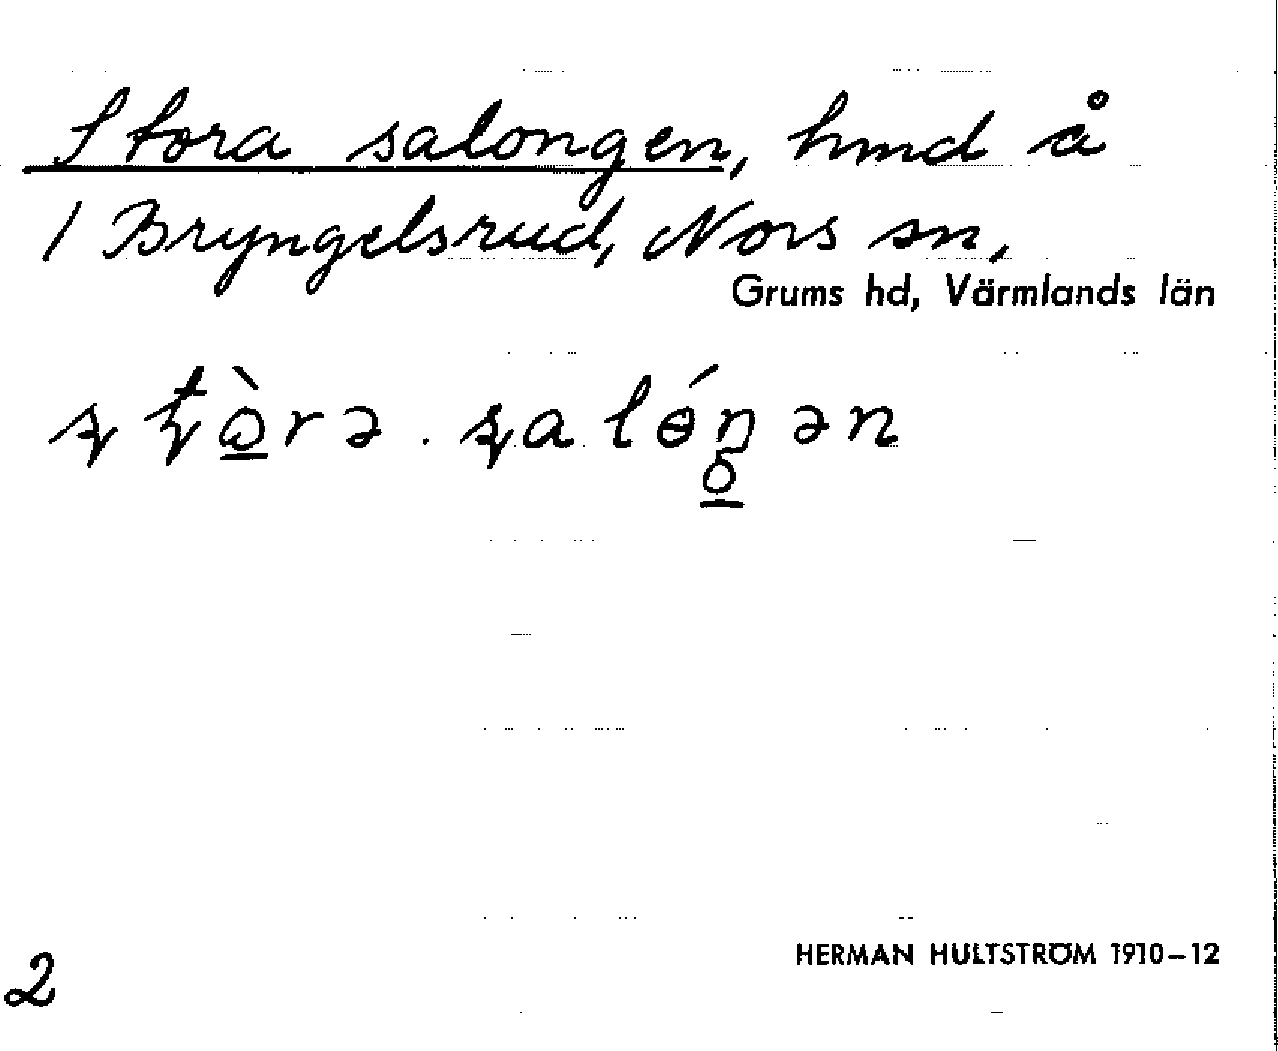 Stora salongen, hmd å
1 Bryngelsrud, Nors sn,
Grums hd, Värmlands län
HERMAN HULTSTRÖM 1910–12
2